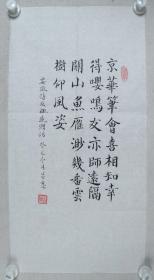 京華筆會喜相知幸
得嚶鳴友亦師遠隔
關山魚雁渺幾番雲
樹仰風姿